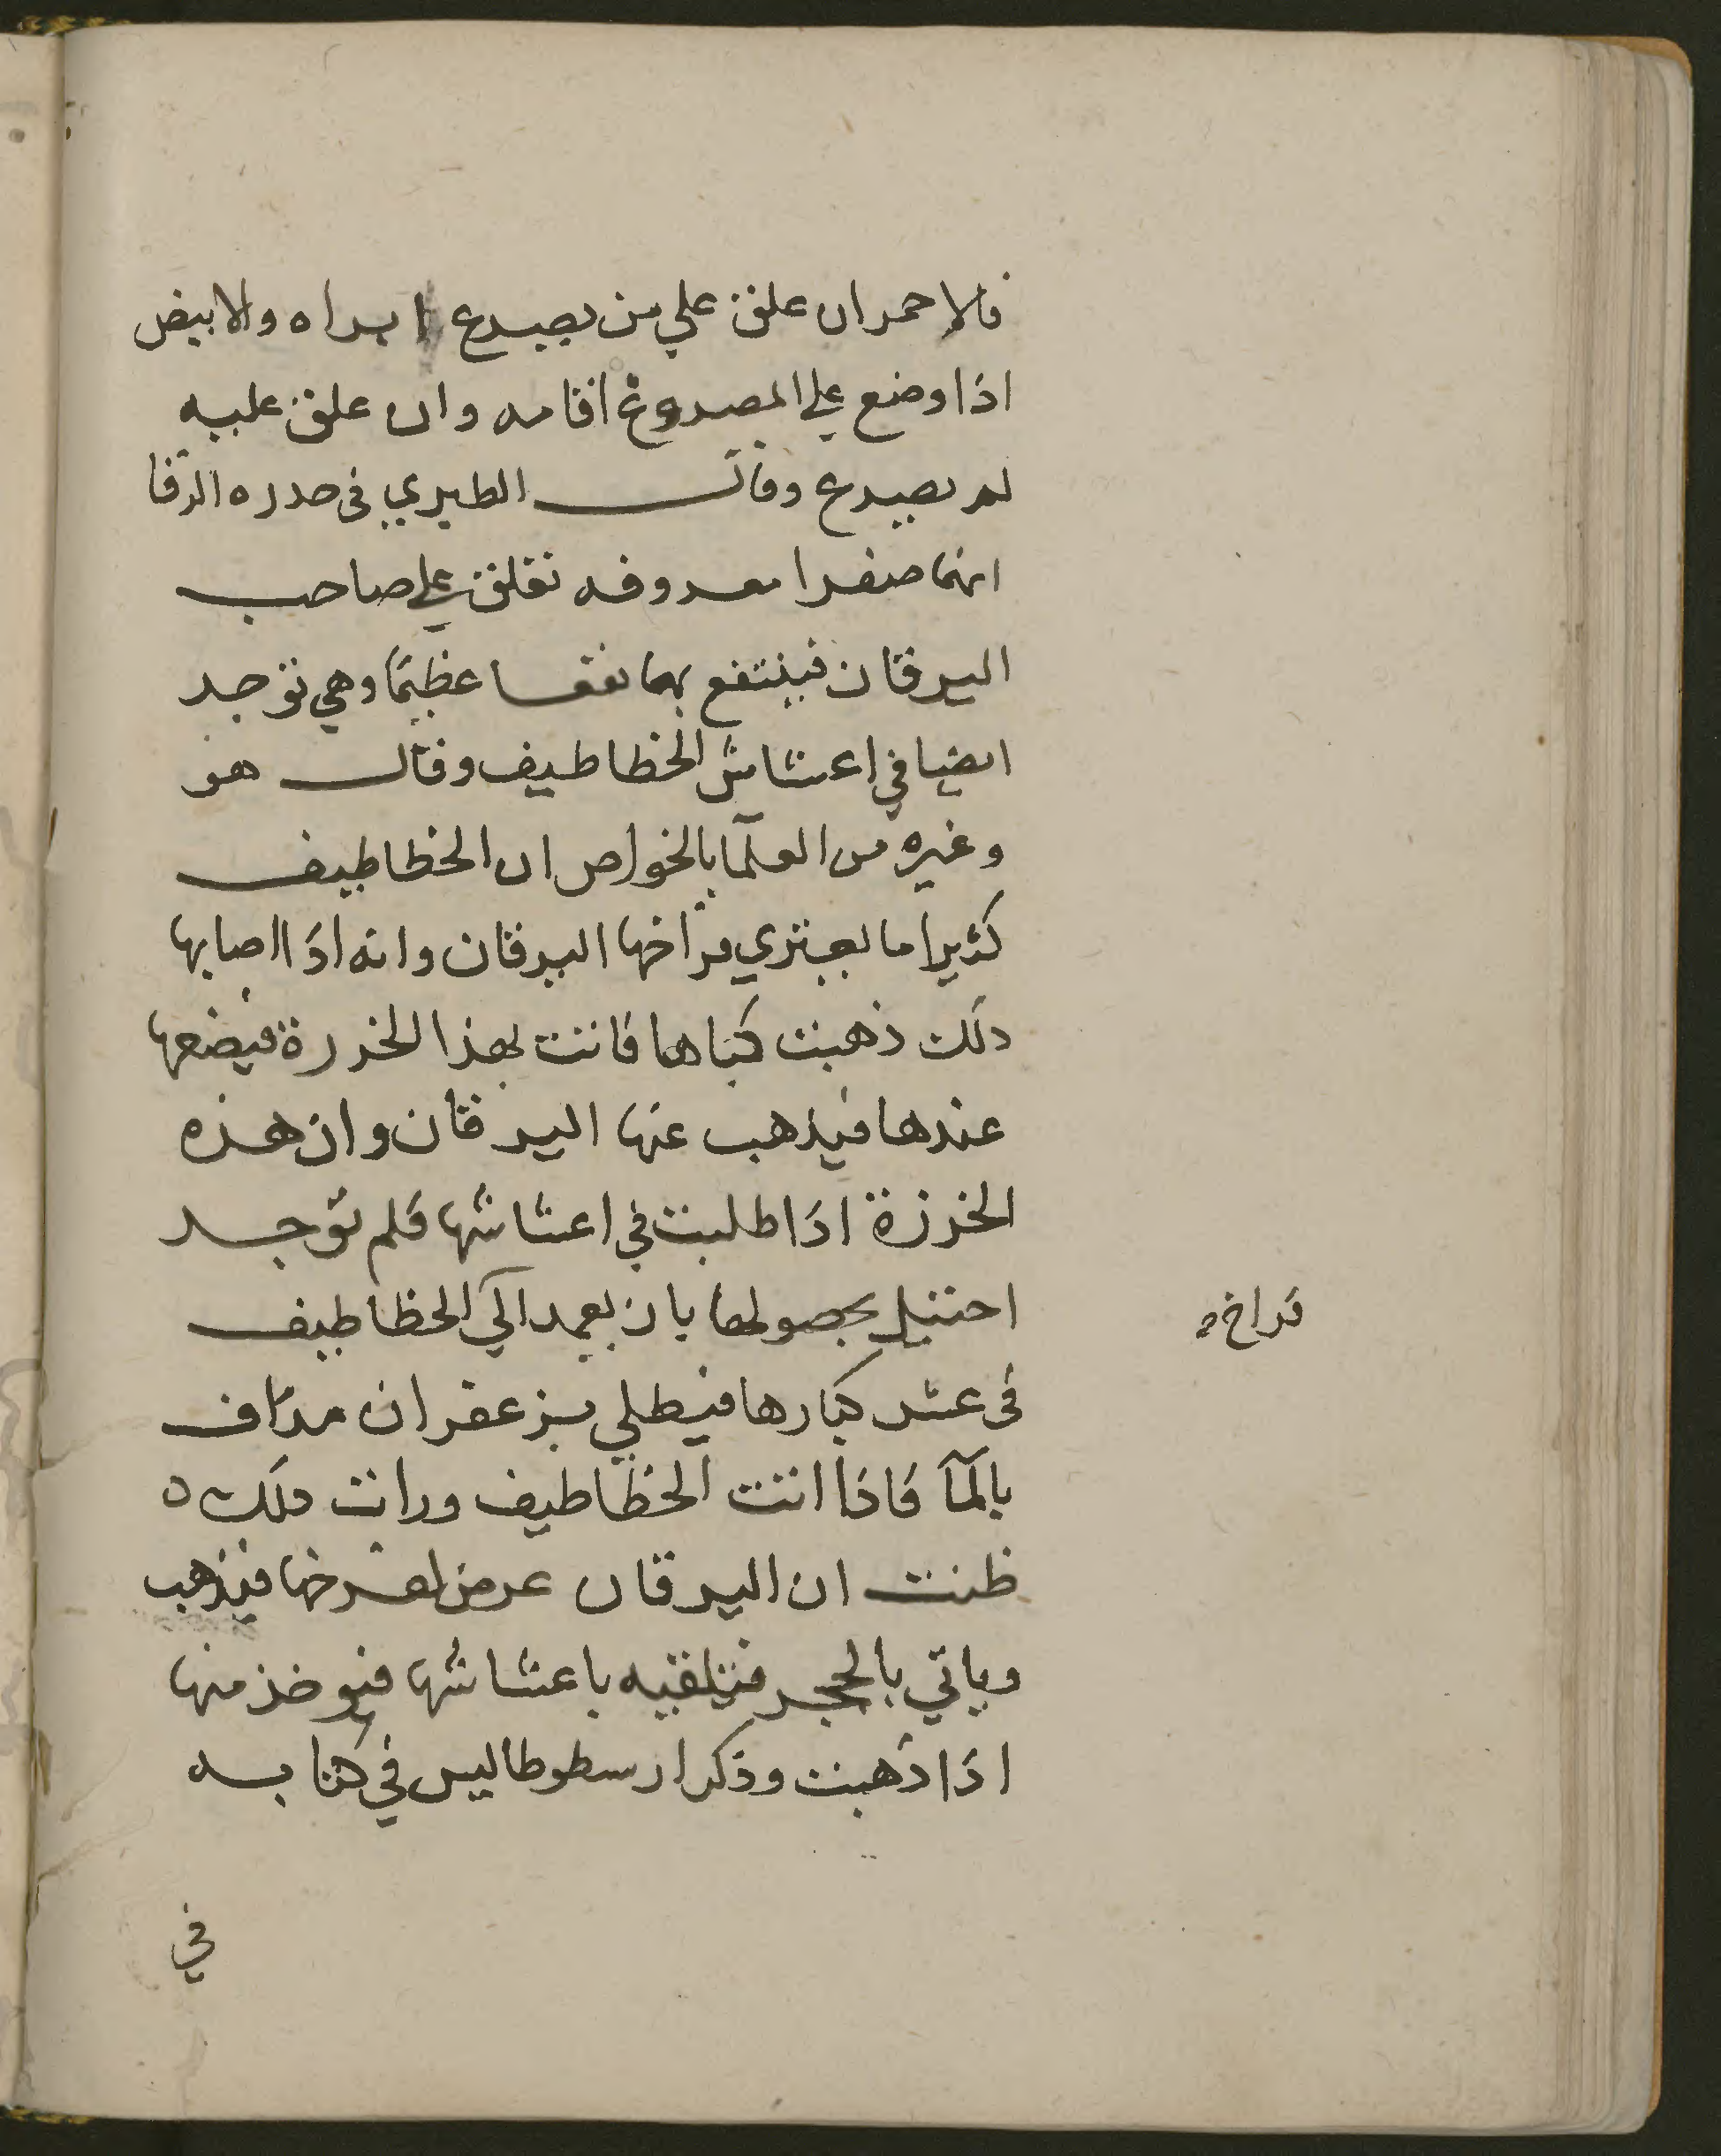 فالاحمر ان علق علي من يصرع ابراه والابيض
اذا وضع علي المصروع افامه وان علق عليه
لم يصرع وقال الطبري في صدره
انها صفرا معروفه تعلق علي صاحب
اليرقان فينتفع بها نفعا عظيما وهي توجد
ايضا في اعشاش الخطاطيف وقال هو
وغيره من العلما بالخواص ان الخطاطيف
كثيرا ما يعتري فراخها اليرقان وانه اذا اصابها
ذلك ذهبت كباها فاتت بهذا الخرزة فيضعها
عندها فيذهب عنها اليرقان وان هذه
الخرزة اذا طلبت في اعشاشها فلم توجد
احتيل بحصولها بان يعمد الي الخطاطيف
فراخ
في عش كبارها فيطلي بزعفران مداف
بالما فاذا اتت الخطاطيف ورات ذلك ه
ظنت ان اليرقان عرض لفرخها فيذهب
وياتي بالحجر فتلقيه باعشاشها فيوخذ منها
اذا ذهبت وذكر ارسطوطاليس في كتابه
في